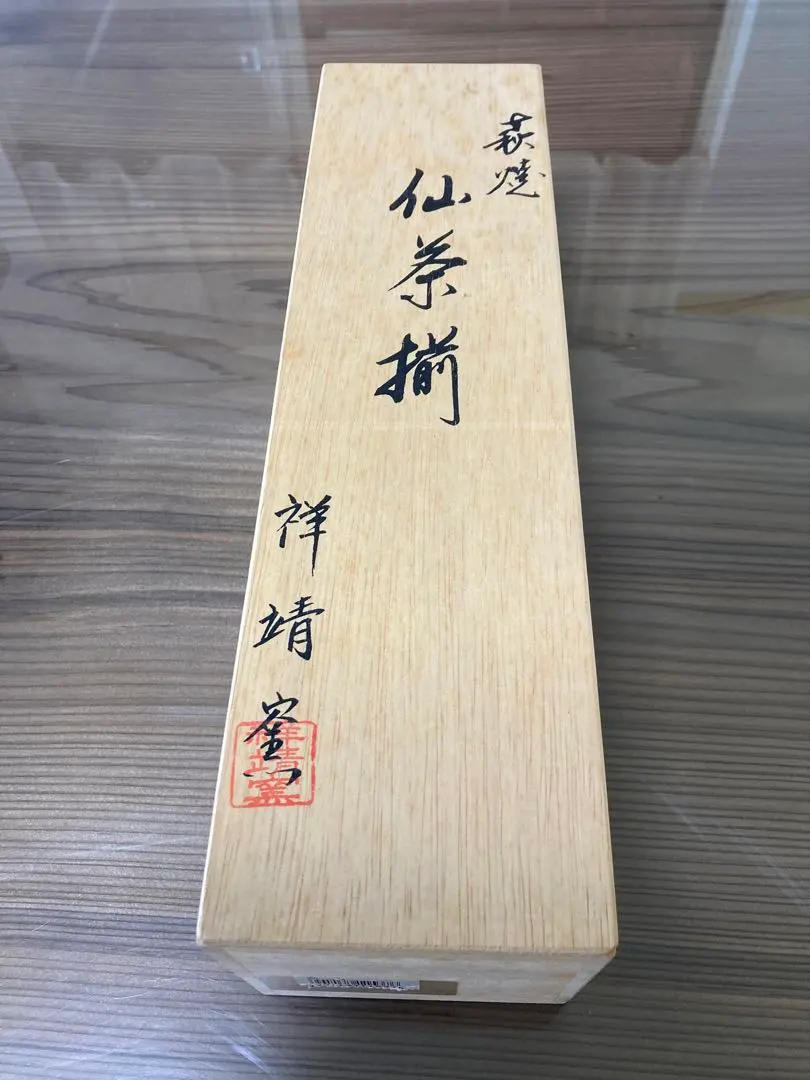 萩焼
仙茶揃
祥靖窯
祥靖窯